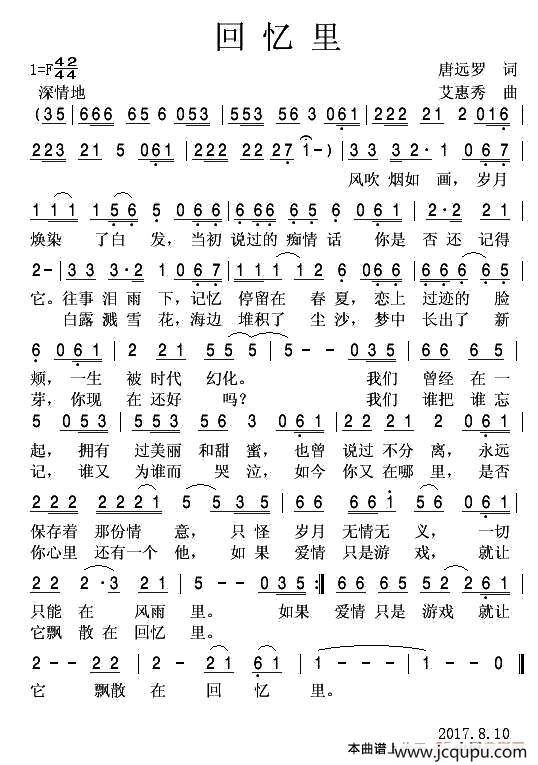 回 忆 里
1=F 42/44
唐远罗 词
深情地
艾惠秀 曲
(35 | 666 65 6 053 | 553 56 3 061 | 222 21 2 016 |
223 21 5 061 | 222 22 27 1-) | 33 32· 1 067 |
风吹 烟如 画， 岁月
111 156 5 066 | 666 665 6 061 | 2·2 22 21 |
焕染 了白 发，当初 说过的 痴情 话 你是 否 还 记得
2- | 33 3·2 1 067 | 111 12 6 2 066 | 666 65 |
它。往事 泪 雨 下，记忆 停留在 春 夏，恋上 过迹的 脸
白露 溅 雪 花，海边 堆积了 尘 沙，梦中 长出了 新
6 061 | 2 21 21 | 5 5 | 5-- 035 | 553 535 |
颊，一生 被 时代 幻化。 我们 曾经 在 一
芽，你现 在 还好 吗？ 我们 谁把 谁 忘
5 053 | 553 535 6 061 | 11 655 3 061 |
起，拥有 过美丽 和甜 蜜，也曾 说过 不分 离，永远
记，谁又 为谁而 哭 泣，如今 你又 在哪 里，是否
222 2221 2 22 | 66 661 5 061 |
保存着 那份情 意，只 怪 岁月 无情无 义，一切
你心里 还有一个 他，如 果 爱情 只是游 戏，就让
22 2·3 21 | 5-- 035 :| 66 665 52 261 |
只能 在 风雨 里。 如果 爱情 只是 游戏 就让
它飘 散 在 回忆 里。
2-- 22 | 2-- 21 | 61 | 1--- | 1--0 ‖
它 飘散 在 回 忆 里。
2017.8.10
本曲谱上
www.jcqupu.com